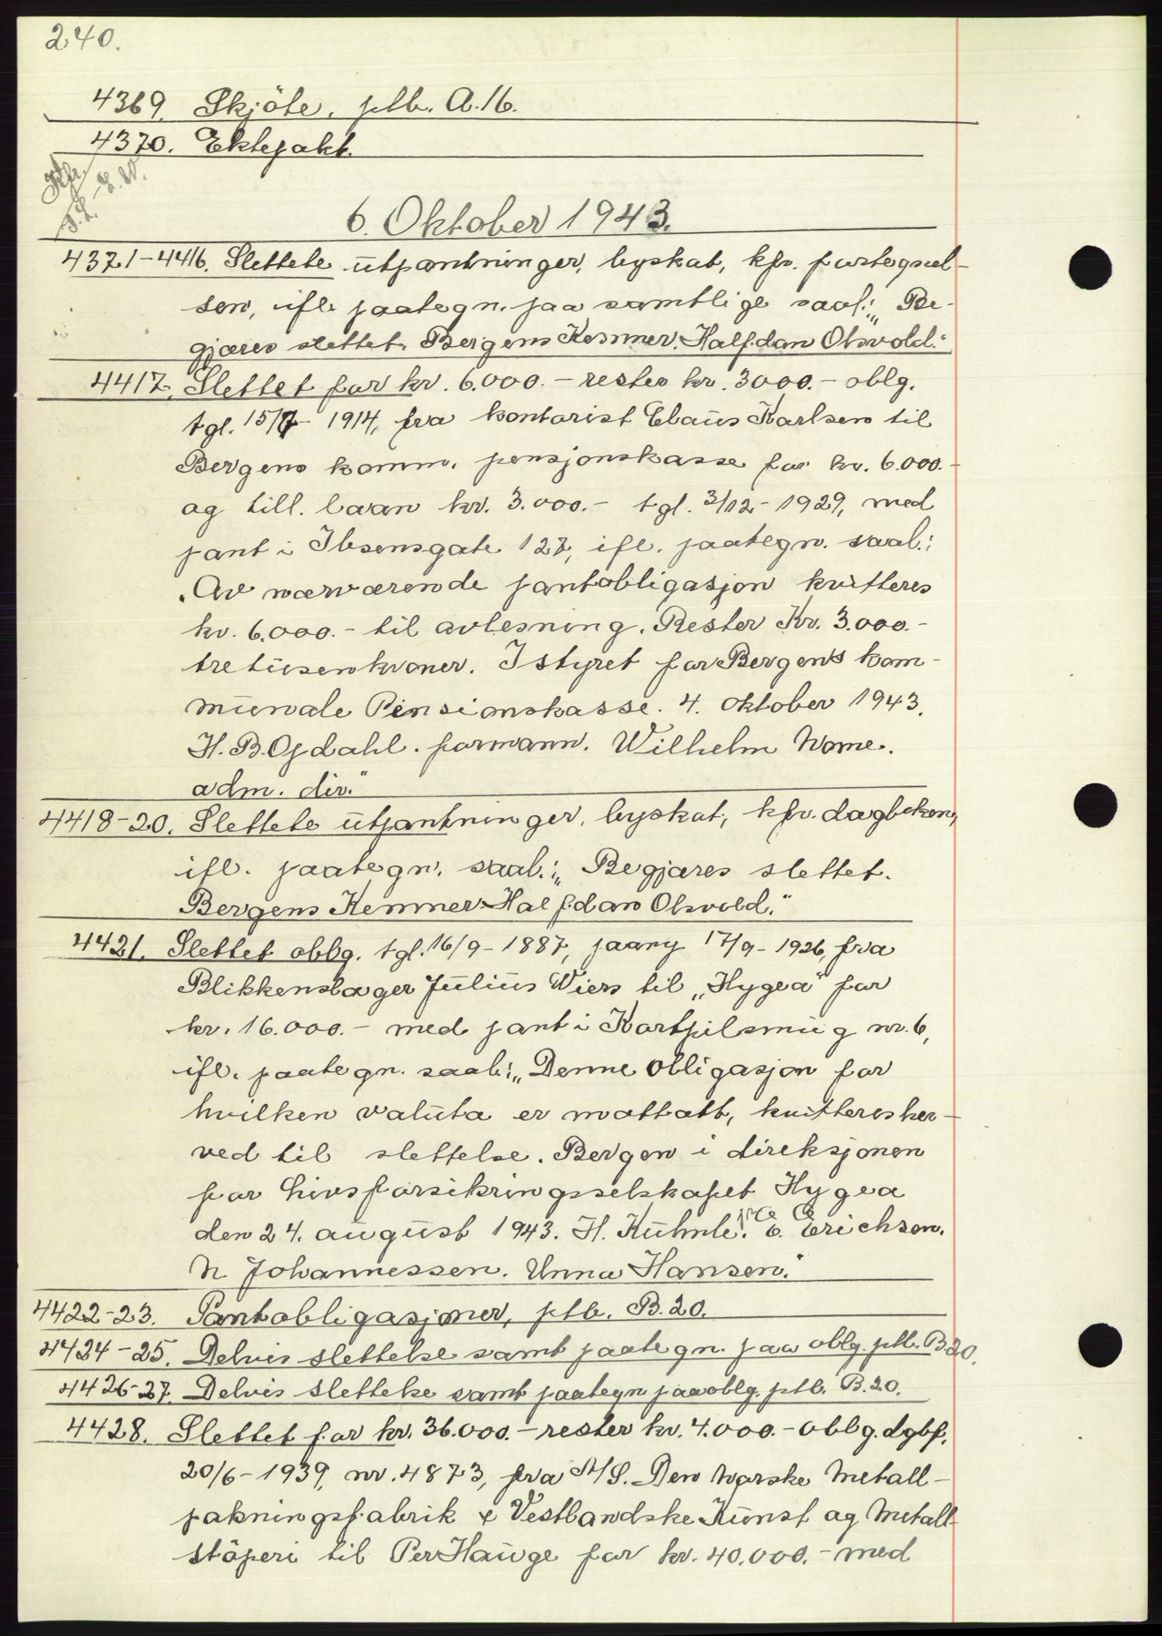 240.
4369. Skjöte, ptb. A.16.
4370. Ektepakt.
Kfr.
6. Oktober 1943.
4371-4416. Slettete utpantninger, byskat, kfr. fortegnel-
sen, ifl. paategn. paa samtlige saal.: „Be-
gjæres slettet. Bergens Kemner. Halfdan Olsvold."
4417. Slettet for kr. 6.000.- rester kr. 3000.- oblg.
tgl. 15/7- 1914, fra kontorist Claus Karlsen til
Bergens komm. pensjonskasse for kr. 6.000.-
og till. laan kr. 3.000.- tgl. 3/12- 1929, med
pant i Ibsensgate 127, ifl. paategn. saal.:
„Av nærværende pantobligasjon kvitteres
kr. 6.000.- til avlesning. Rester Kr. 3.000.-
tretusenkroner. I styret for Bergens kom-
munale Pensionskasse. 4. oktober 1943.
H. B. Opdahl. formann. Wilhelm Worne.
adm. dir."
4418-20. Slettete utpantninger, byskat, kfr. dagboken,
ifl. paategn. saal.: „Begjæres slettet.
Bergens Kemner Halfdan Olsvold."
4421. Slettet oblg. tgl. 16/9- 1887, paany 17/9- 1926, fra
Blikkenslager Julius Wiers til „Hygea" for
kr. 16.000.- med pant i Kortpilsmug nr. 6,
ifl. paategn. saal.: „Denne obligasjon for
hvilken valuta er mottatt, kvitteres her-
ved til slettelse. Bergen i direksjonen
for livsforsikringsselskapet Hygea
den 24. august 1943. H. Kuhnle. E. Erichsen.
N Johannessen. Unna Hansen."
4422-23. Pantobligasjoner, ptb. B.20.
4424-25. Delvis slettelse samt paategn. paa oblg. ptb. B20.
4426-27. Delvis slettelse samt paategn paa oblg. ptb. B.20.
4428. Slettet for kr. 36.000.- rester kr. 4.000.- oblg. dgbf.
20/6- 1939, nr. 4873, fra A/S. Den Norske Metall-
pakningsfabrik & Vestlandske Kunst og Metall-
stöperi til Per Hauge for kr. 40.000.- med